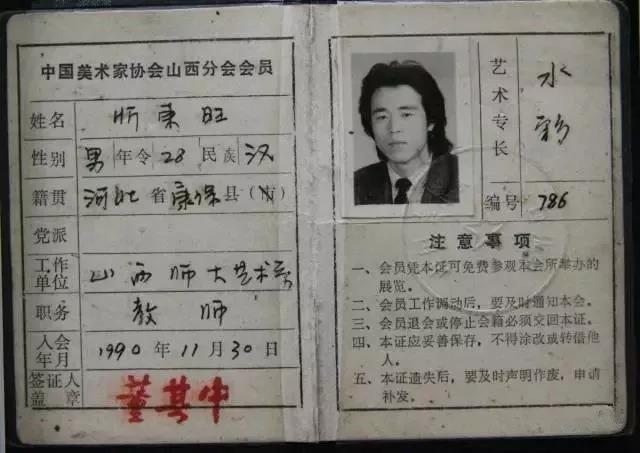 中国美术家协会山西分会会员
姓名 忻東旺
性别 男 年令 28 民族 汉
籍贯 河北省康保县(市)
党派
工作单位 山西师大艺术系
职务 教师
入会年月 1990年11月30日
签证人盖章 董其中
艺术专长 水彩
编号 786
注意事项
一、会员凭本证可免费参观本会所举办的
展览。
二、会员工作调动后，要及时通知本会。
三、会员退会或停止会籍必须交回本证。
四、本证应妥善保存，不得涂改或转借他
人。
五、本证遗失后，要及时声明作废，申请
补发。